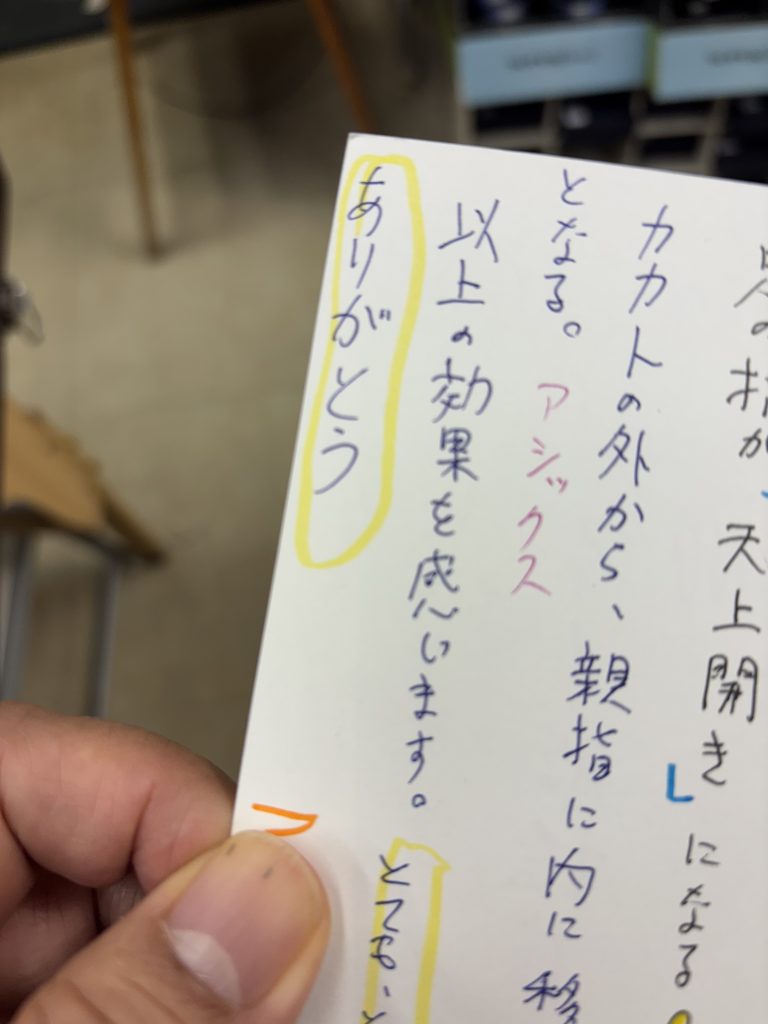 の指が、天上開き」になる
カカトの外から、親指に内に移
となる。
アシックス
以上の効果を感じます。
ありがとう